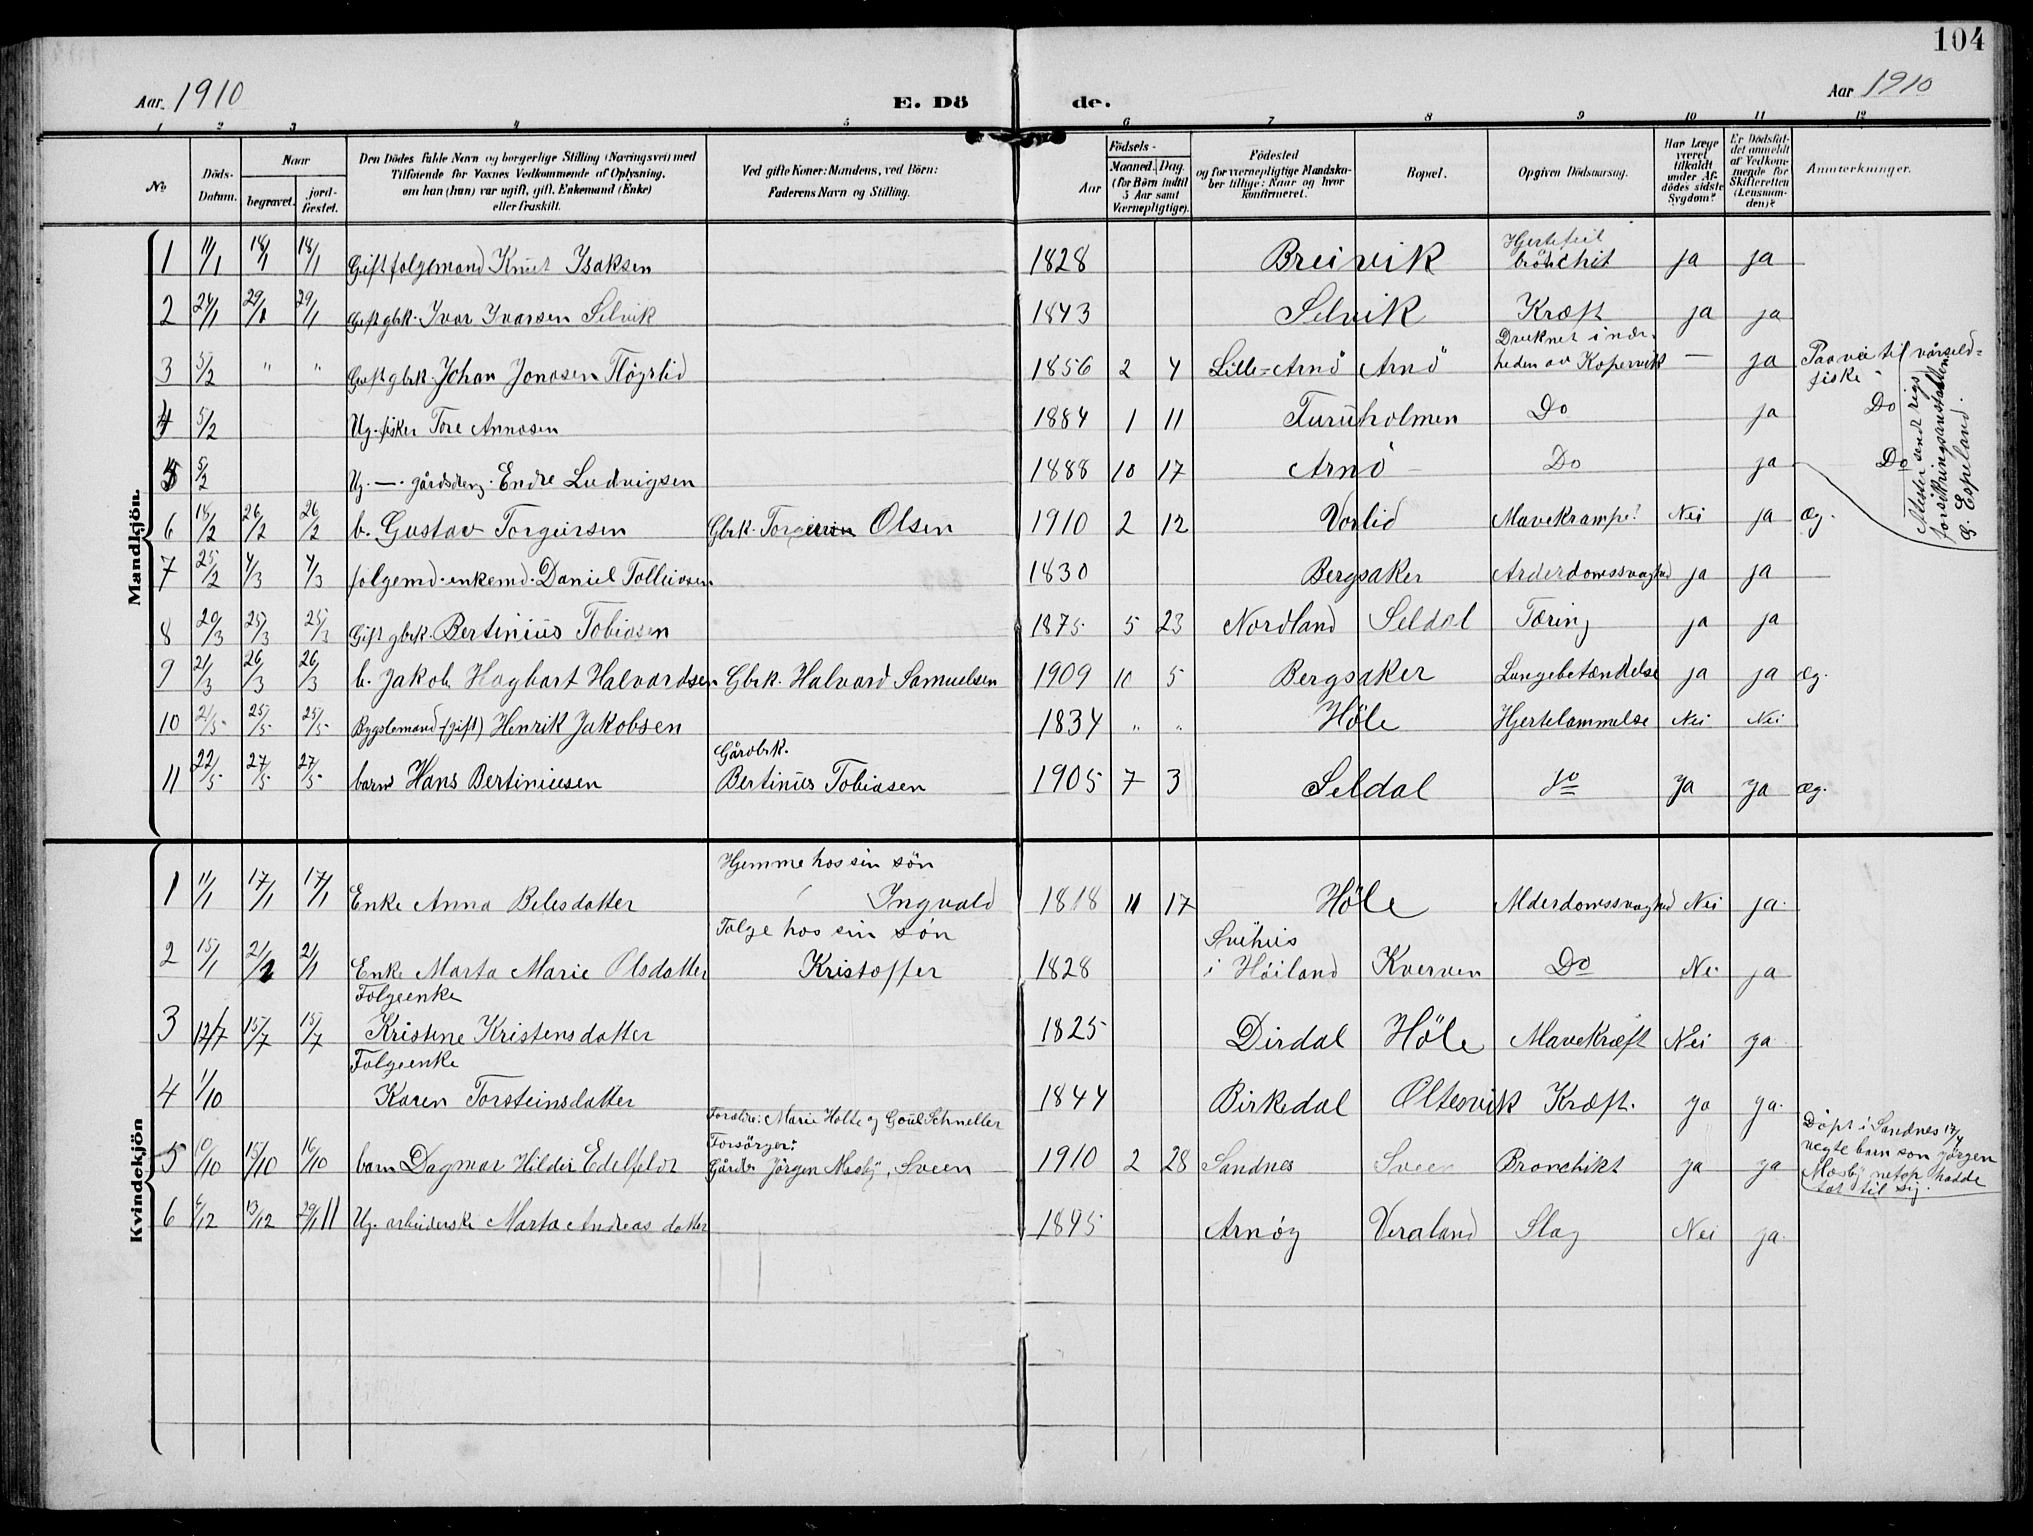 104
Aar 1910 E. Dö de. Aar 1910
1 2 3 4 5 6 7 8 9 10 11 12
No
Döds-Datum.
Naar
begravet.
jord-fæstet.
Den Dödes fulde Navn og borgerlige Stilling (Næringsvei) med
Tilföiende for Voxnes Vedkommende af Oplysning,
om han (hun) var ugift, gift, Enkemand (Enke)
eller fraskilt.
Ved gifte Koner: Mandens, ved Börn:
Faderens Navn og Stilling.
Aar
Födsels-
Maaned. Dag.
(for Börn indtil
5 Aar samt
Værnepligtige).
Födested
og for værnepligtige Mandska-
ber tillige: Naar og hvor
konfirmeret.
Bopæl.
Opgiven Dödsaarsag.
Har Læge
været
tilkaldt
under Af-
dödes sidste
Sygdom?
Er Dödsfal-
det anmeldt
af Vedkom-
mende for
Skifteretten
(Lensman-
den)?
Anmærkninger.
Mandkjön.
1 11/1 18/1 18/1 Gift folgemand Knut Isaksen 1828 Breivik Hjertefeil bronchit ja ja
2 24/1 29/1 29/1 Gift gbrk. Ivar Ivarsen Selvik 1843 Selvik Kræft ja ja
3 5/2 " " Gift gbrk. Johan Jonasen Högslid 1856 2 4 Lille-Arnö Arnö Druknet i nær-heden av Kopervik — ja Paa vei til vårsild-fiske
4 5/2 Ug. fisker Tore Annasen 1884 1 11 Furuholmen Do ja Do
5 5/2 Ug. —. gårdsdreng. Endre Ludvigsen 1888 10 17 Arnö Do ja Do
Attester sendt rigs
forsikringsanstalten
G. Espeland.
6 18/2 26/2 26/2 b. Gustav Torgeirsen Gbrk. Torgeir Olsen 1910 2 12 Vorlid Mavekrampe? Nei ja æg.
7 25/2 4/3 4/3 folgemd. enkemd. Daniel Tolleivsen 1830 Bergsaker Arderdomssvaghed ja ja
8 20/3 25/3 25/3 Gift gbrk. Bertinius Tobiasen 1875 5 23 Nordland Seldal Tæring ja ja
9 21/3 26/3 26/3 b. Jakob Hagbart Halvardsen Gbrk. Halvard Samuelsen 1909 10 5 Bergsaker Lungebetændelse ja ja æg.
10 21/5 25/5 25/5 Bygslemand (gift) Henrik Jakobsen 1834 " " Höle Hjertelammelse Nei Nei
11 22/5 27/5 27/5 barn Hans Bertiniusen Gårdbrk. Bertinius Tobiasen 1905 7 3 Seldal do ja ja æg.
Kvindekjön
1 11/1 17/1 17/1 Enke Anna Belesdatter Hjemme hos sin søn Ingvald 1818 11 17 Höle Alderdomssvaghed Nei ja.
2 15/1 21/1 21/1 Enke Marta Marie Olsdatter Folge hos sin søn Kristoffer 1828 i Höiland Kverven Do Nei ja
3 12/7 15/7 15/7 Folgeenke Kristine Kristensdatter 1825 Dirdal Höle Mavekræft Nei ja
4 1/10 Folgeenke Karen Torsteinsdatter 1844 Birkedal Oltesvik Kræft. ja ja.
5 10/10 15/10 16/10 barn Dagmar Hildir Edelfeldt Foreldre: Marie Holte og Goul Schneller
Forsörger: Gårdbr Jörgen Mosbÿ, Sveen 1910 2 28 Sandnes Sveen Bronchikt ja ja Döpt i Sandnes 17/4
uegte barn som Jörgen
Mosbÿ netop hadde
tat til sig.
6 6/12 13/12 29/1 11 Ug. arbeiderske Marta Andreasdatter 1895 Arnöy Veraland Slag Nei ja.